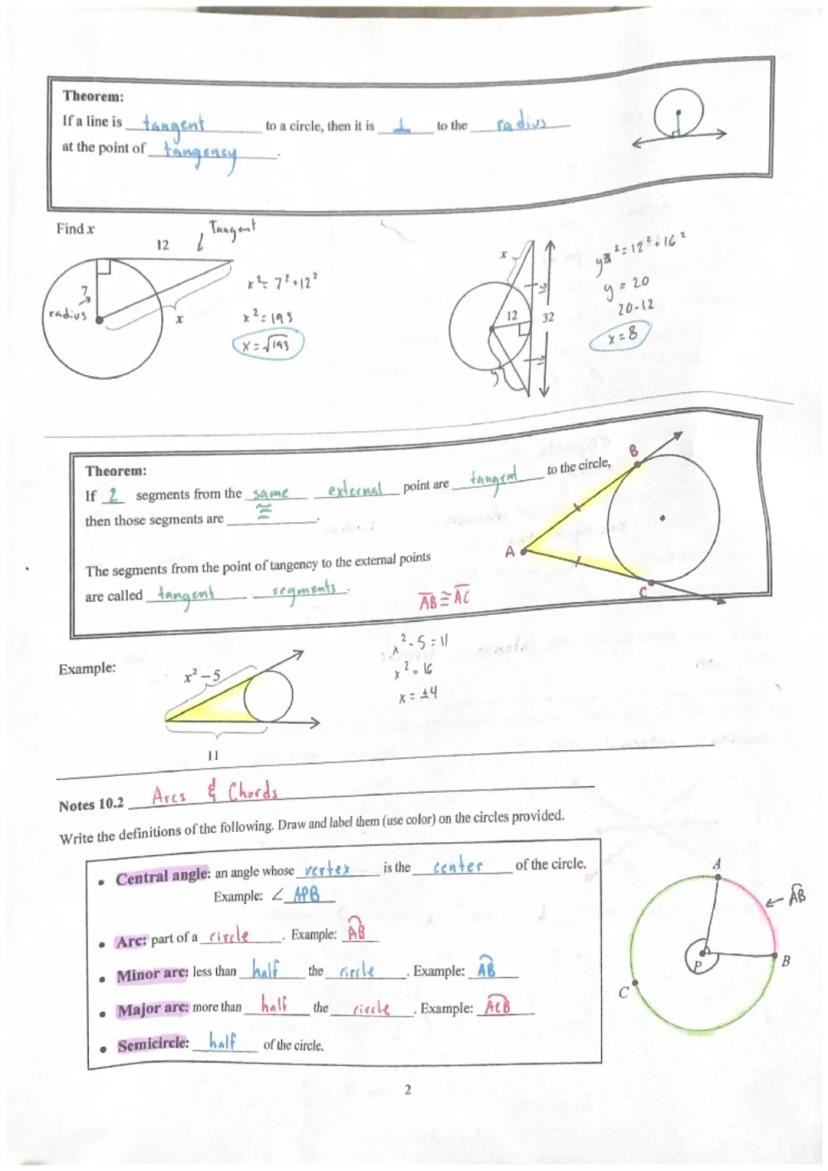 Theorem:
If a line is tangent to a circle, then it is ⊥ to the radius
at the point of tangency.
Find x
12 Tangent
7
radius
x
x² = 7² + 12²
x² = 193
x = √193
x
y
12
32
y
y
y² = 12² + 16²
y = 20
20-12
x = 8
Theorem:
If 2 segments from the same external point are tangent to the circle,
then those segments are ≅.
The segments from the point of tangency to the external points
are called tangent segments.
AB ≅ AC
A
B
C
Example:
x² – 5
11
x² - 5 = 11
x² = 16
x = ±4
Notes 10.2 Arcs & Chords
Write the definitions of the following. Draw and label them (use color) on the circles provided.
• Central angle: an angle whose vertex is the center of the circle.
Example: ∠ APB
• Arc: part of a circle. Example: AB
• Minor arc: less than half the circle. Example: AB
• Major arc: more than half the circle. Example: ACB
• Semicircle: half of the circle.
A
AB
P
B
C
2